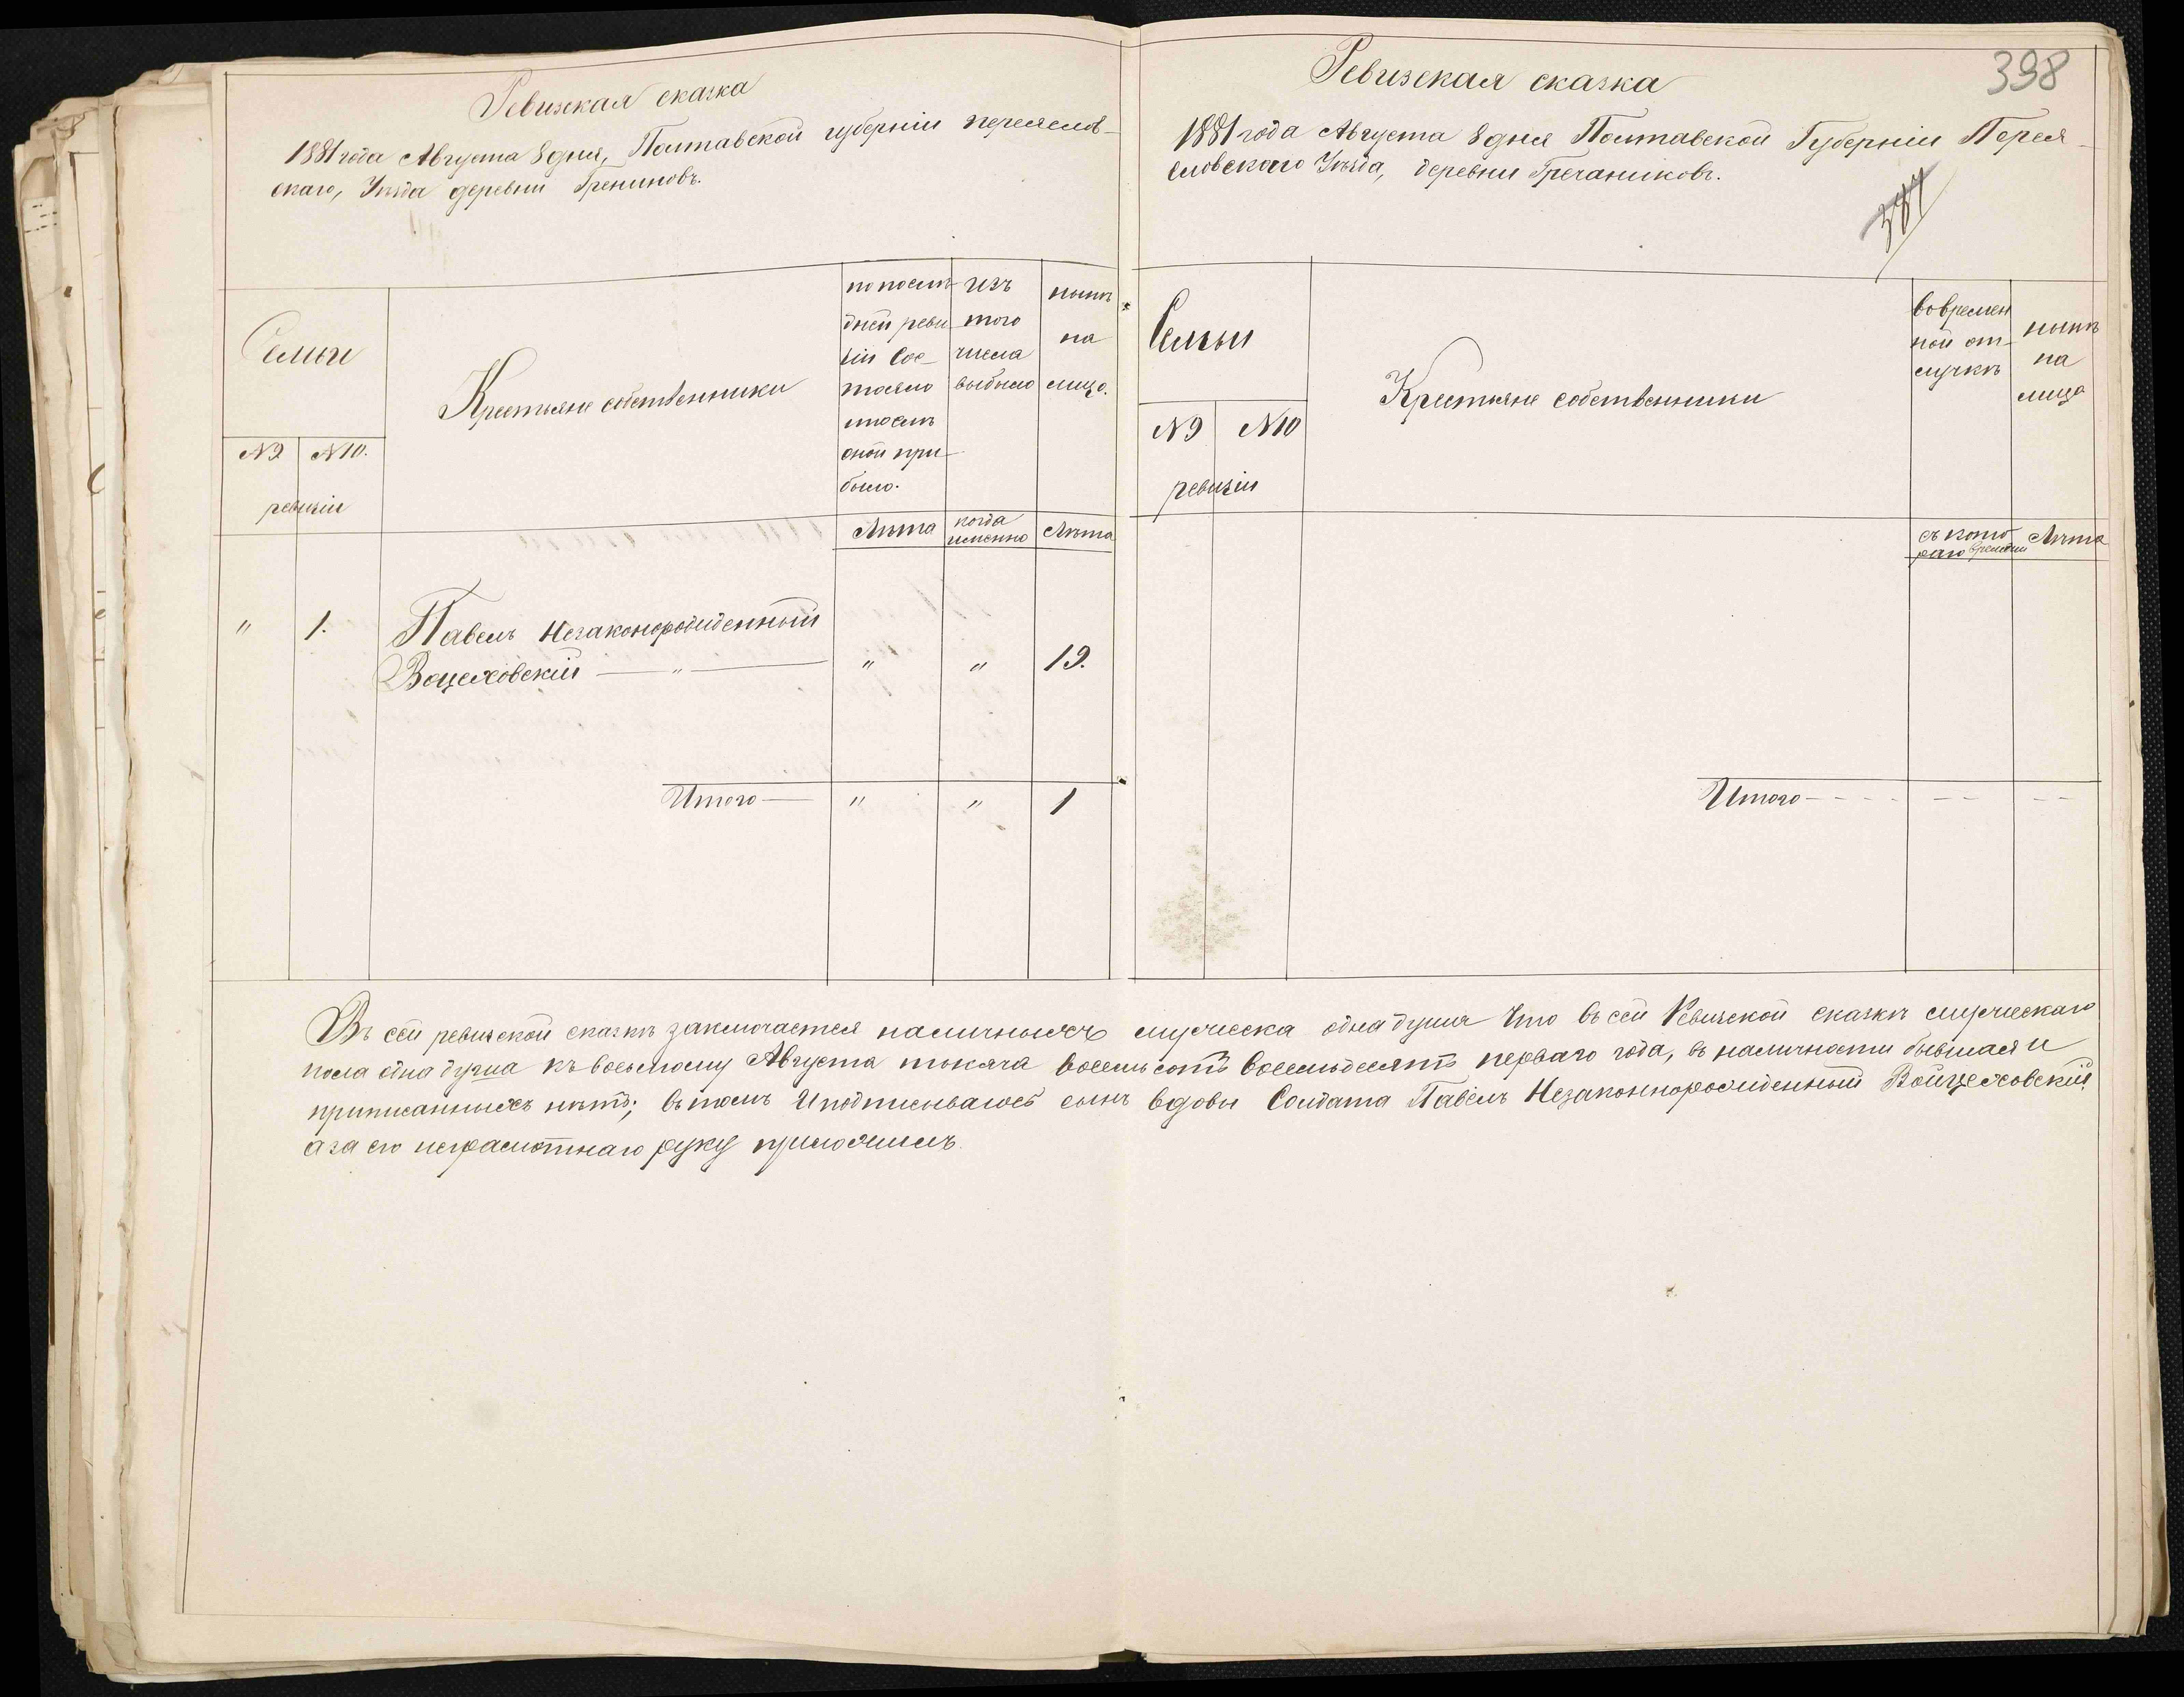 Ревизская сказка
1881 года Августа 8 дня, Полтавской губерніи переяслов-
скаго, Уѣзда деревни Грениновъ.
Семьи
№9 №10.
ревизіи
Крестьяне собственники
по послѣ-
дней реви
зіи Сос-
тояло
ипослѣ
оной при-
было.
Лѣта
изъ
того
числа
выбыло
когда
именно
нынѣ
на
лицо.
Лѣта
" 1. Павелъ Незаконорожденный
Воцеховскій — " — " " 19.
Итого — " " 1
Ревизская сказка
398
1881 года Августа 8 дня Полтавской Губерніи Перея-
словскаго Уѣзда, деревни Гречаниковъ.
Семьи
№9 №10
ревизіи
Крестьяне собственники
вовремен
ной от-
лучкѣ
съ кото
раго времени
нынѣ
на
лицо
Лѣта
Итого - - - - - - - -
Въ сей ревизской сказкѣ заключается наличныхъ мужеска одна душа Что въ сей Ревизской сказкѣ мужескаго
пола одна душа къ восьмому Августа тысяча восемьсотъ восемьдесятъ перваго года, въ наличности бывшая и
приписанныхъ нѣтъ; въ томъ Иподписываюсь сынъ вдовы Солдата Павелъ Незаконнорожденный Войцеховскій,
а за его неграмотнаго руку приложилъ.